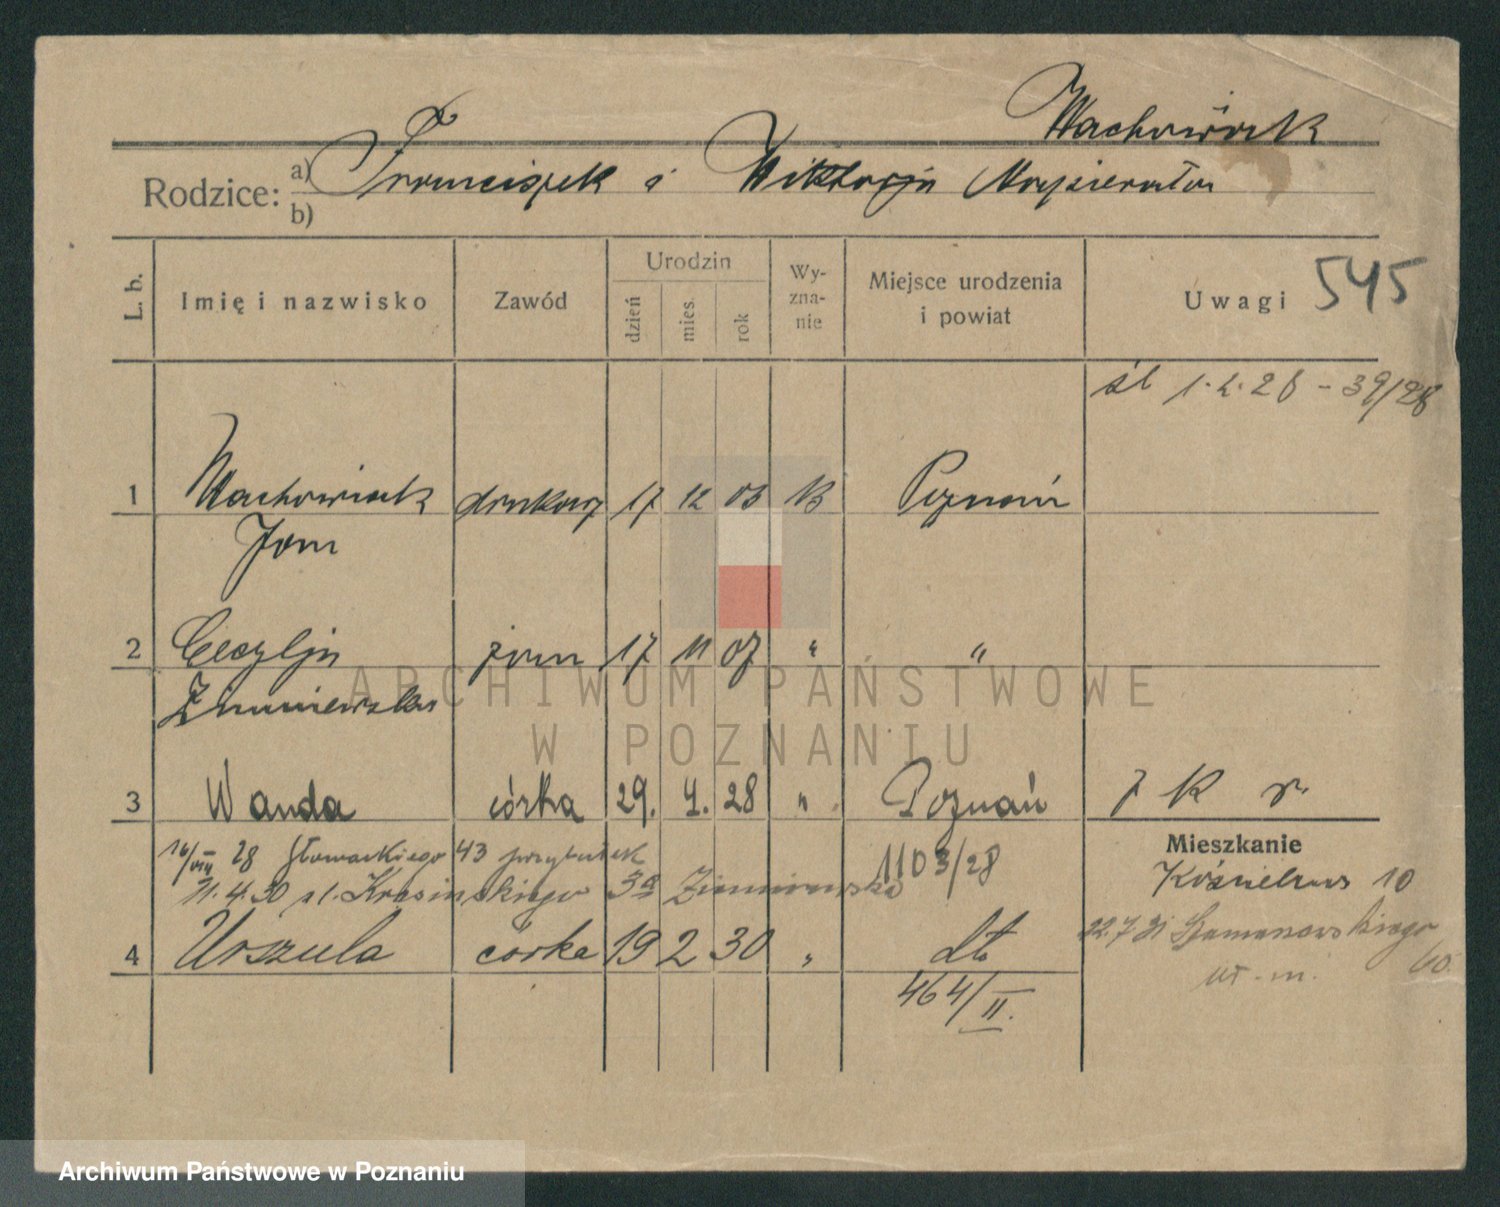 Wachowiak
Rodzice: a) Franciszek i Wiktorja
b)
L. b. Imię i nazwisko Zawód Urodzin dzień mies. rok Wy-zna-nie Miejsce urodzenia i powiat Uwagi 545
śl 1.2.28 - 39/28
1 Wachowiak drukarz 17 12 05 K Poznań
Jan
2 Cecylja żona 17 11 07 " "
3 Wanda córka 29. 4. 28 " Poznań
Mieszkanie
16/VIII 28 Słowackiego 43 1103/28
11.4.30 ul. Krasińskiego 3a
10
4 Urszula córka 19 2 30 " dto
22.7.31 Szamarzewskiego
60
464/II.
ARCHIWUM PAŃSTWOWE
W POZNANIU
Archiwum Państwowe w Poznaniu